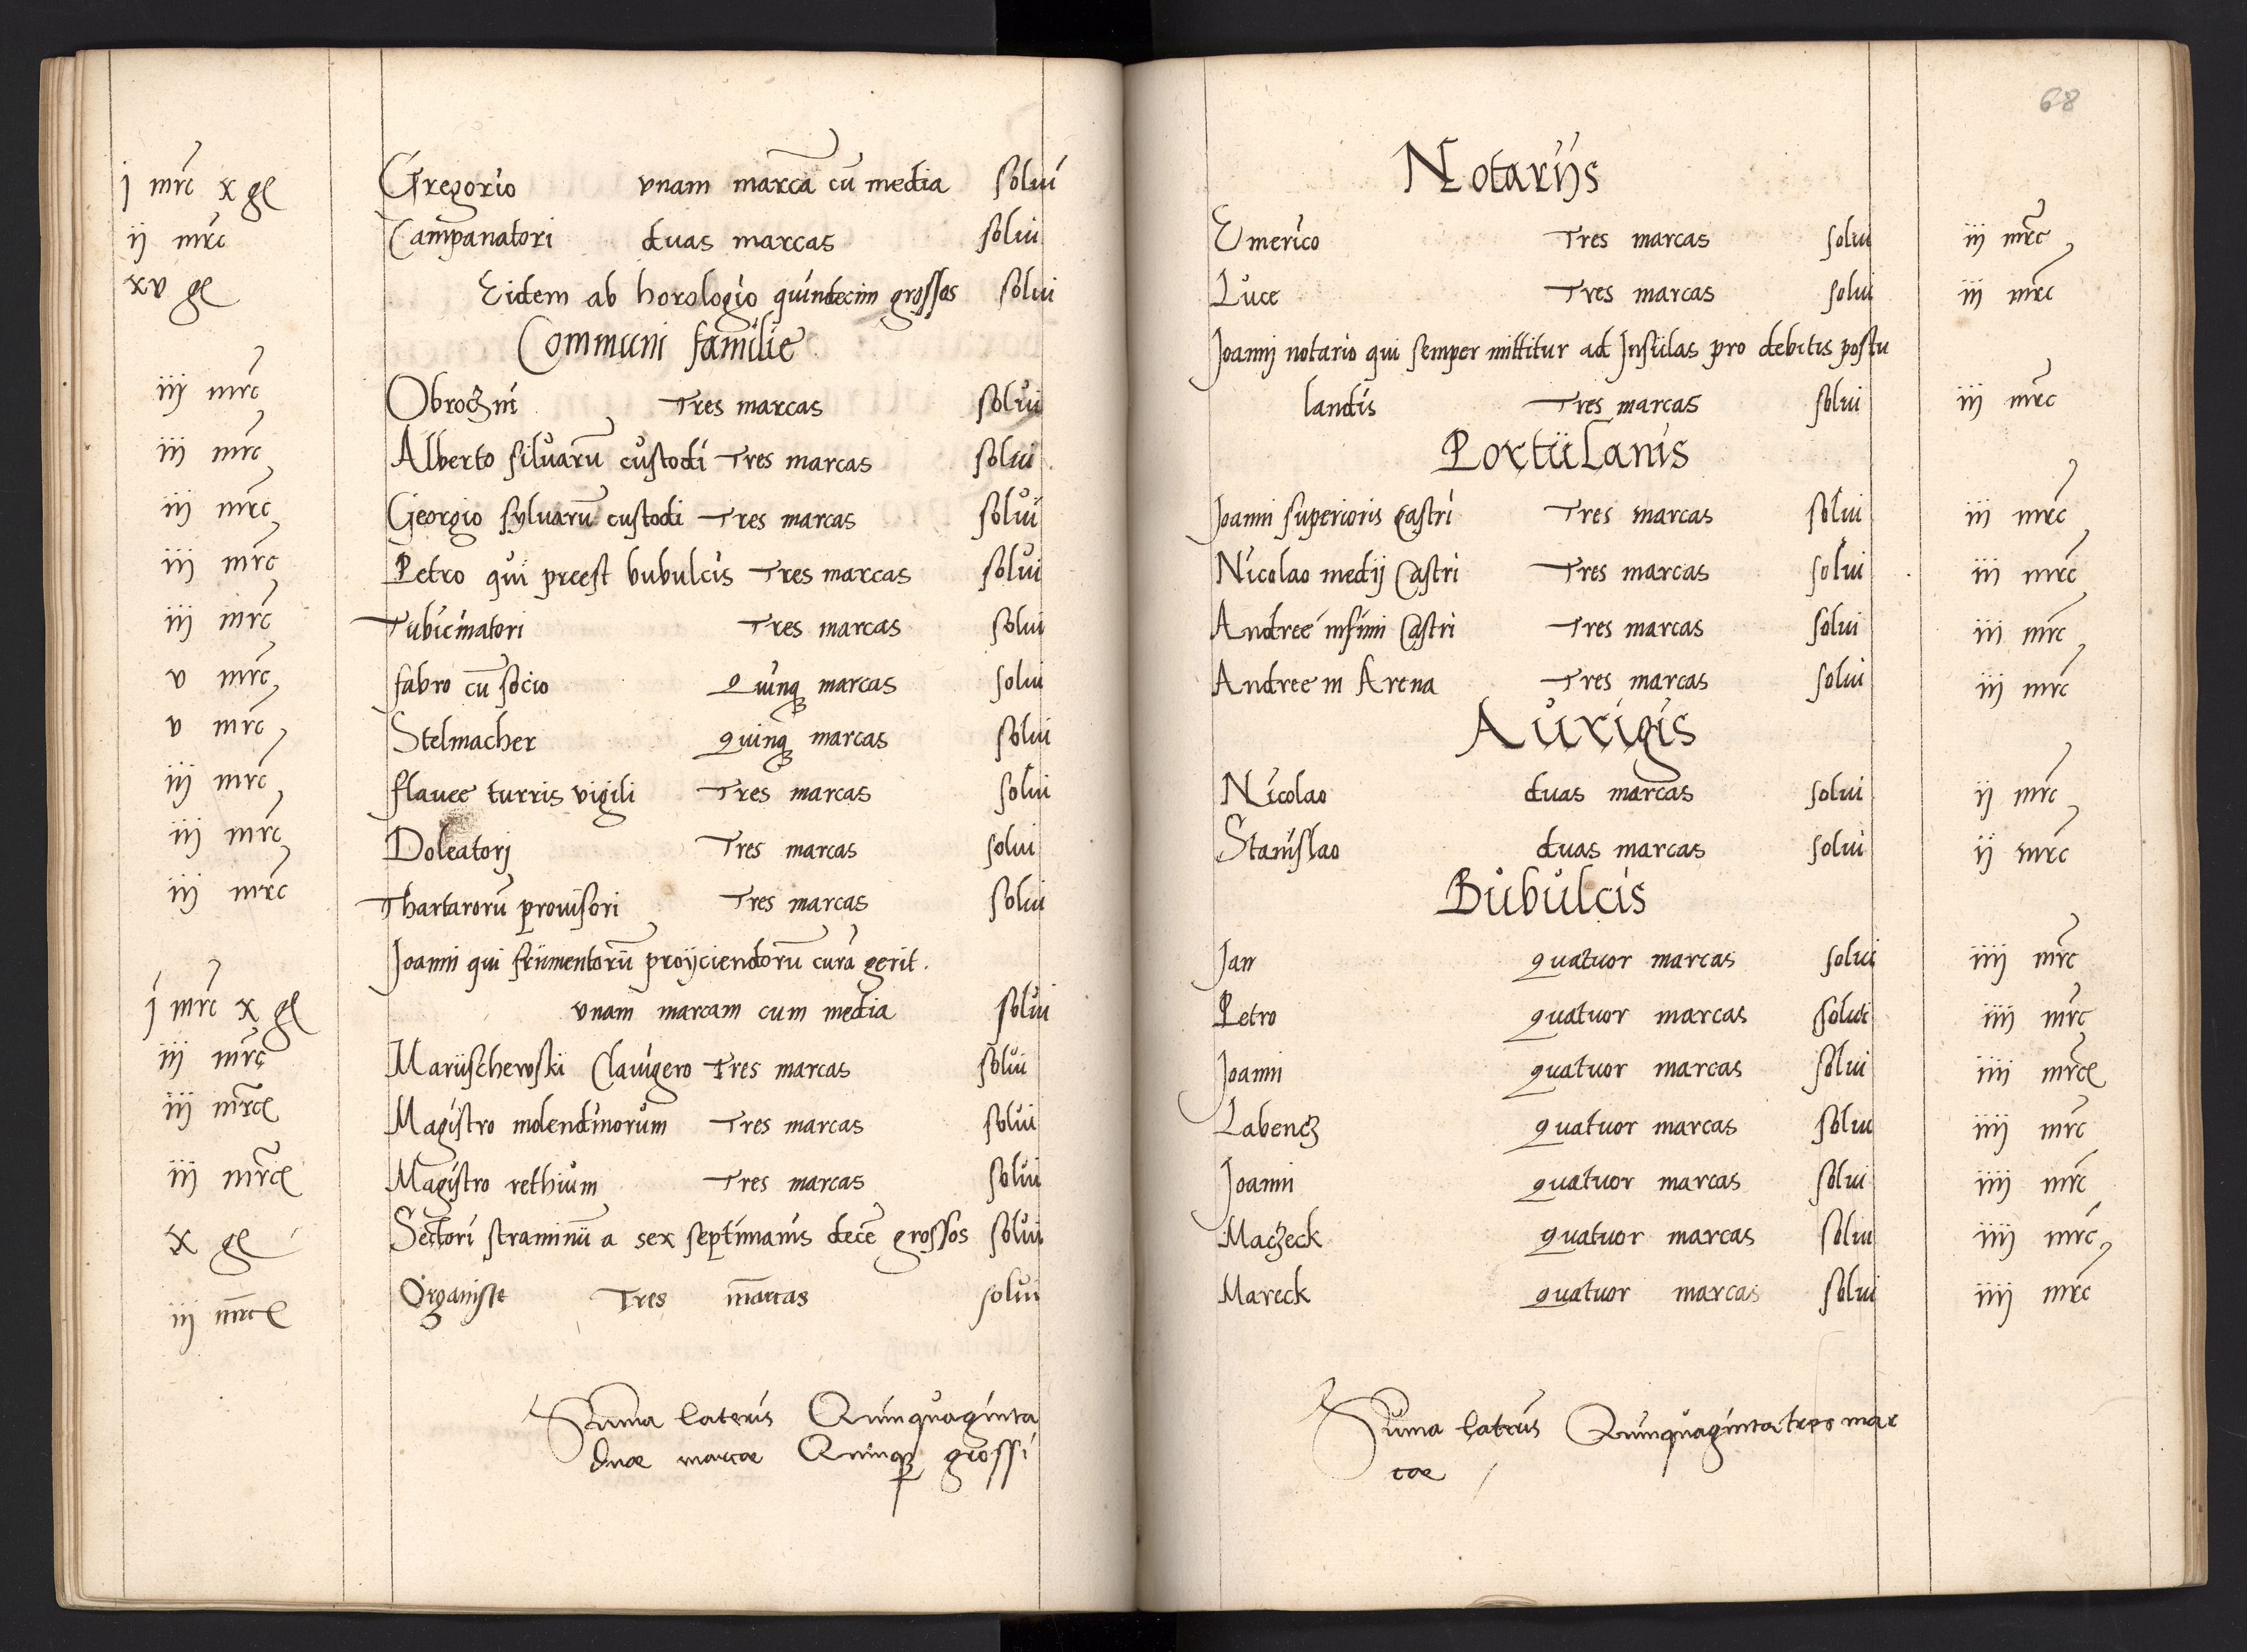 j mrc x gl Gregorio vnam marcā cū media solui
ij mrc Campanatori duas marcas solui
xv gl Eidem ab horologio quindecim grossos solui
Communi familie
iij mrc Obroczni Tres marcas solui
iij mrc Alberto siluarū custodi Tres marcas solui
iij mrc Georgio syluarū custodi Tres marcas solui
iij mrc Petro qui preest bubulcis Tres marcas solui
iij mrc Tubicinatori Tres marcas solui
v mrc fabro cū socio Quinqȝ marcas solui
v mrc Stelmacher quinqȝ marcas solui
iij mrc flauee turris vigili Tres marcas solui
iij mrc Doleatorj Tres marcas solui
iij mrc Thartarorū prouisori Tres marcas solui
Joanni qui frumentorū proijciendorū curā gerit.
j mrc x gl vnam marcam cum media solui
iij mrc Maruschewski Clauigero Tres marcas solui
iij mrc Magistro molendinorum Tres marcas solui
iij mrc Magistro rethium Tres marcas solui
x gl Sectori straminū a sex septimanis decē grossos solui
iij mrc Organiste Tres marcas solui
Suma lateris Quinquaginta
duae marcae Quinqȝ grossi
68
Notarijs
Emerico Tres marcas solui iij mrc
Luce Tres marcas solui iij mrc
Joannj notario qui semper mittitur ad Insulas pro debitis postu
landis Tres marcas solui iij mrc
Portulanis
Joanni superioris Castri Tres marcas solui iij mrc
Nicolao medij Castri Tres marcas solui iij mrc
Andree infimi Castri Tres marcas solui iij mrc
Andree in Arena Tres marcas solui iij mrc
Aurigis
Nicolao duas marcas solui ij mrc
Stanislao duas marcas solui ij mrc
Bubulcis
Jan quatuor marcas solui iiij mrc
Petro quatuor marcas solui iiij mrc
Joanni quatuor marcas solui iiij mrc
Labencz quatuor marcas solui iiij mrc
Joanni quatuor marcas solui iiij mrc
Maczeck quatuor marcas solui iiij mrc
Mareck quatuor marcas solui iiij mrc
Suma lateris Quinquaginta tres mar
cae